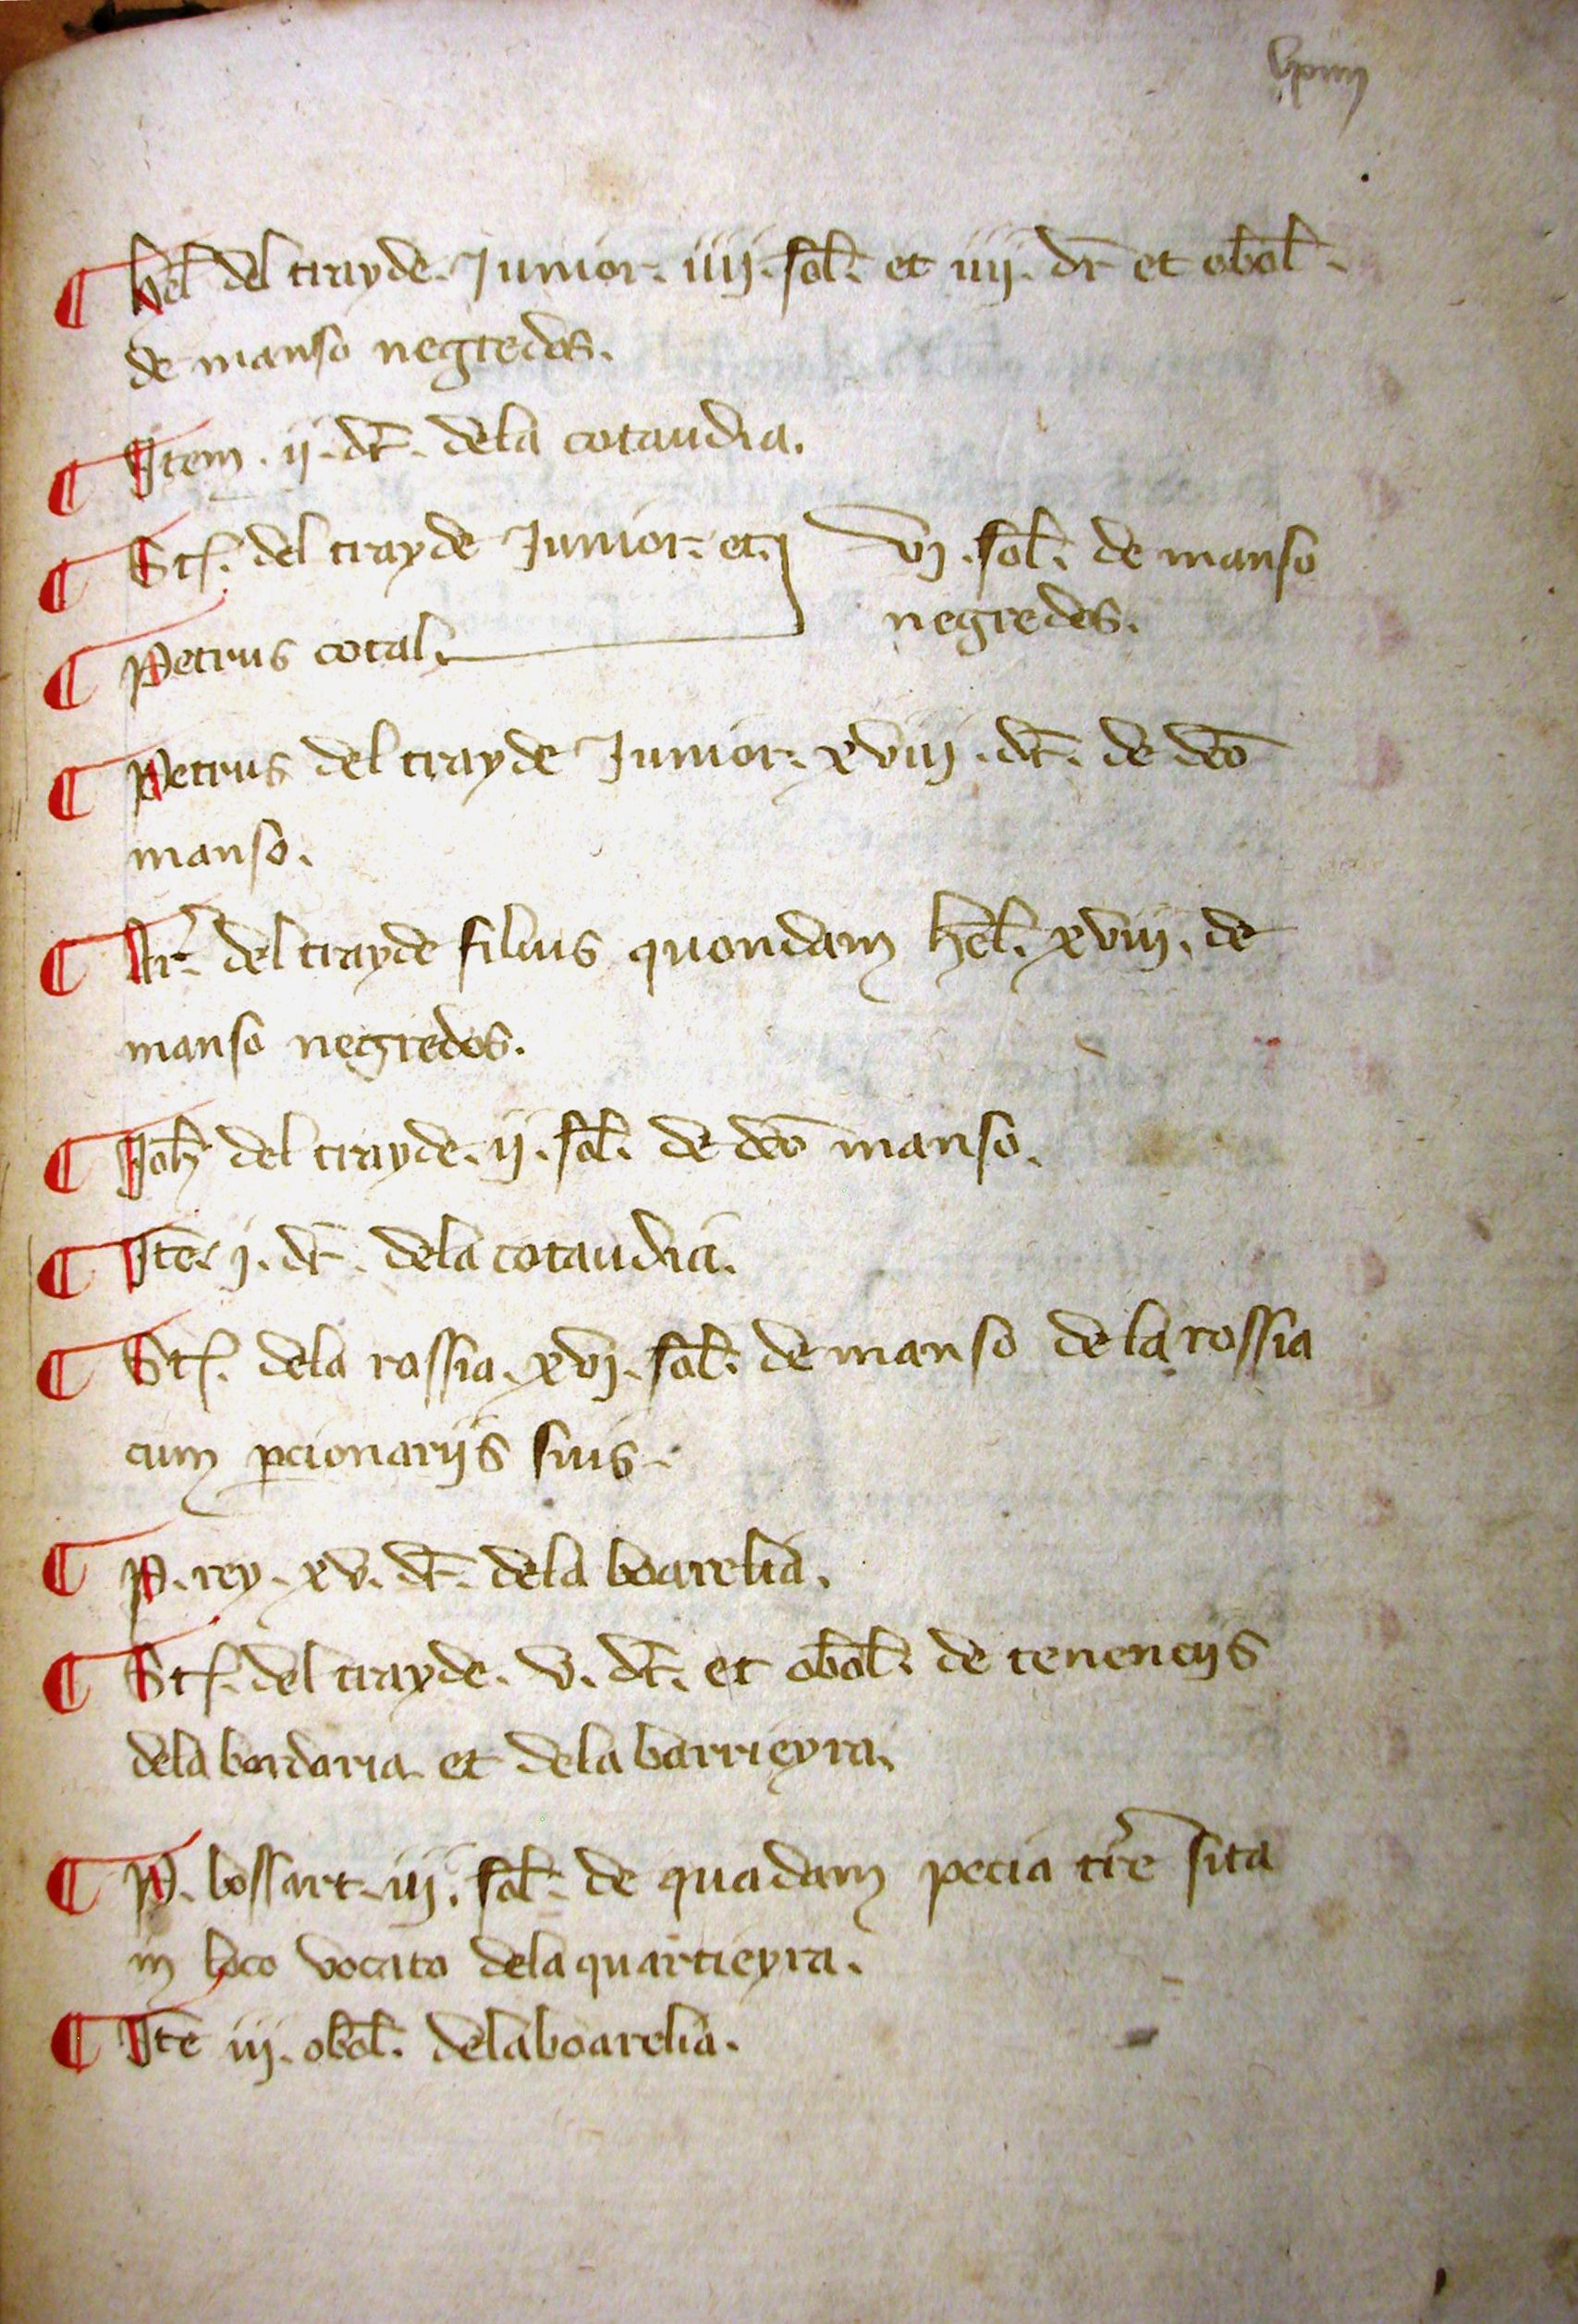 ¶ hel̄ del trayde. Junior. iiij. sol̄. et iiij. dr̄ et obol̄.
de manso negredos.
¶ Item. ij. dr̄. dela cotaudia.
¶ Stf. del trayde Junior. et
¶ Petrus cotal.
vj. sol̄. de manso
negredos.
¶ Petrus del trayde Junior. xviij. dr̄. de dco̅
manso.
¶ del trayde filius quondam hel̄. xviij. de
manso negredos.
¶ Joh̄ del trayde. ij. sol̄. de dco̅ manso.
¶ Ite̅. j. dr̄. dela cotaudia.
¶ Stf. dela rossia. xvj. sol̄. de manso de la rossia
cum ꝑcionarijs suis.
¶ P. rey. xv. dr̄. dela boarelia.
¶ Stf. del trayde. v. dr̄. et obol̄. de tenencijs
dela bordaria et dela barrieyra.
¶ P. bossart. iij. sol̄. de quadam pecia tr̄e sita
in loco vocato dela quartieyra.
¶ Ite̅ iij. obol̄. dela boarelia.